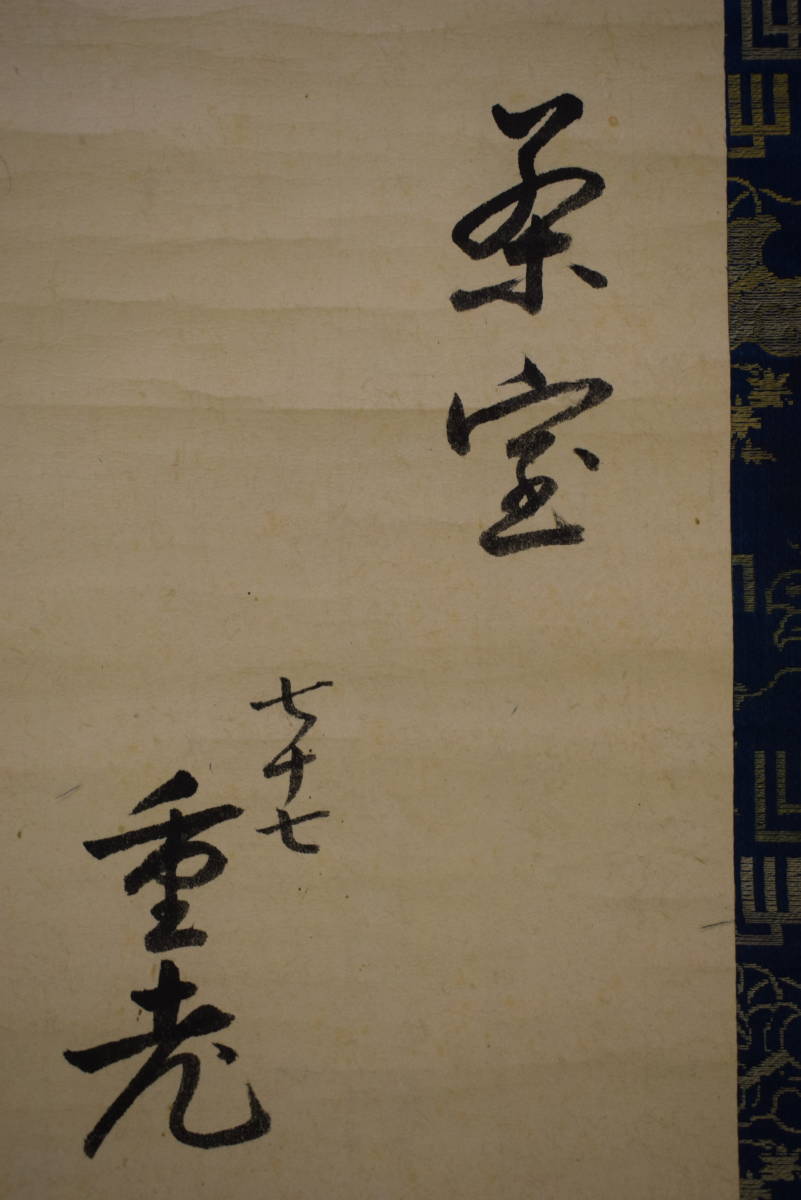 茶室
七十七
重光